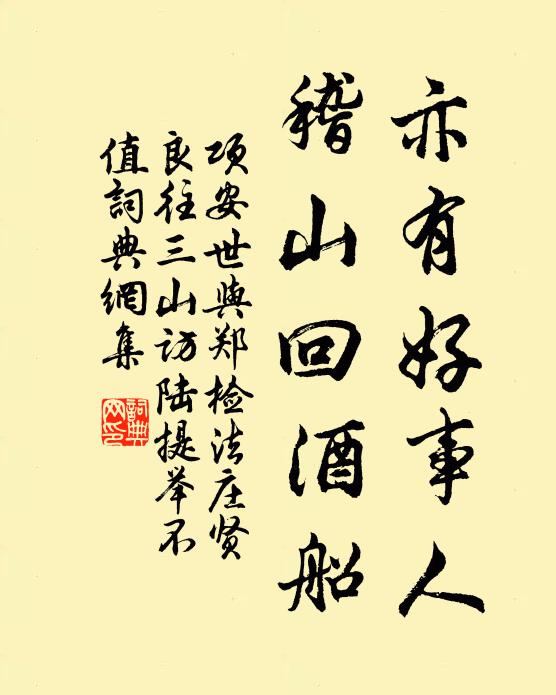 亦有好事人
稽山回酒船
项安世與郑检法庄贤
良往三山访陆提举不
值詞典網集
詞典
网印